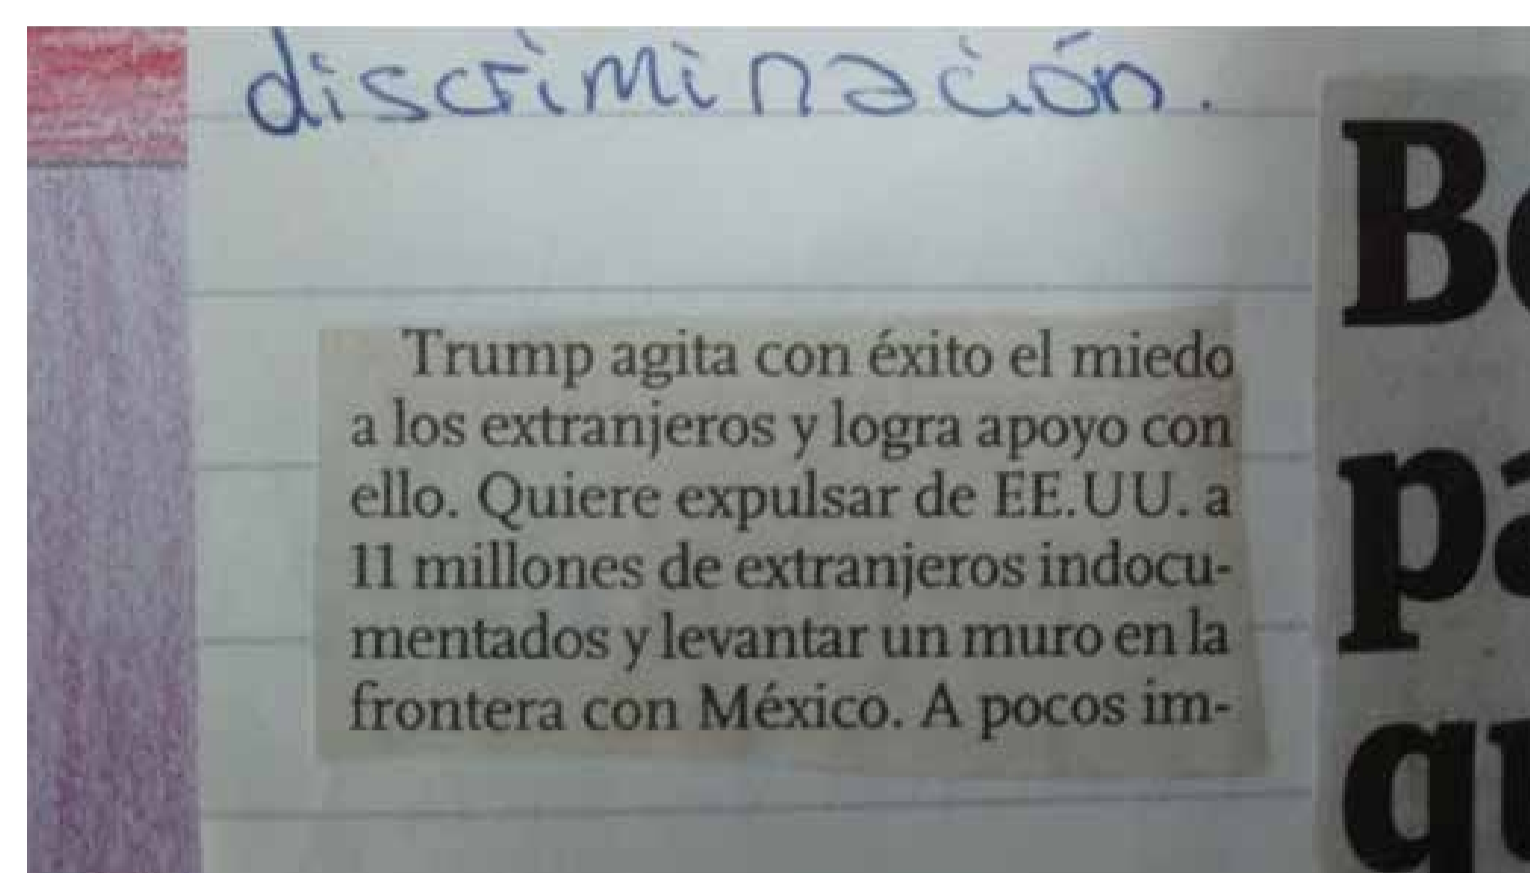 discriminación.
Trump agita con éxito el miedo
a los extranjeros y logra apoyo con
ello. Quiere expulsar de EE.UU. a
11 millones de extranjeros indocu-
mentados y levantar un muro en la
frontera con México. A pocos im-